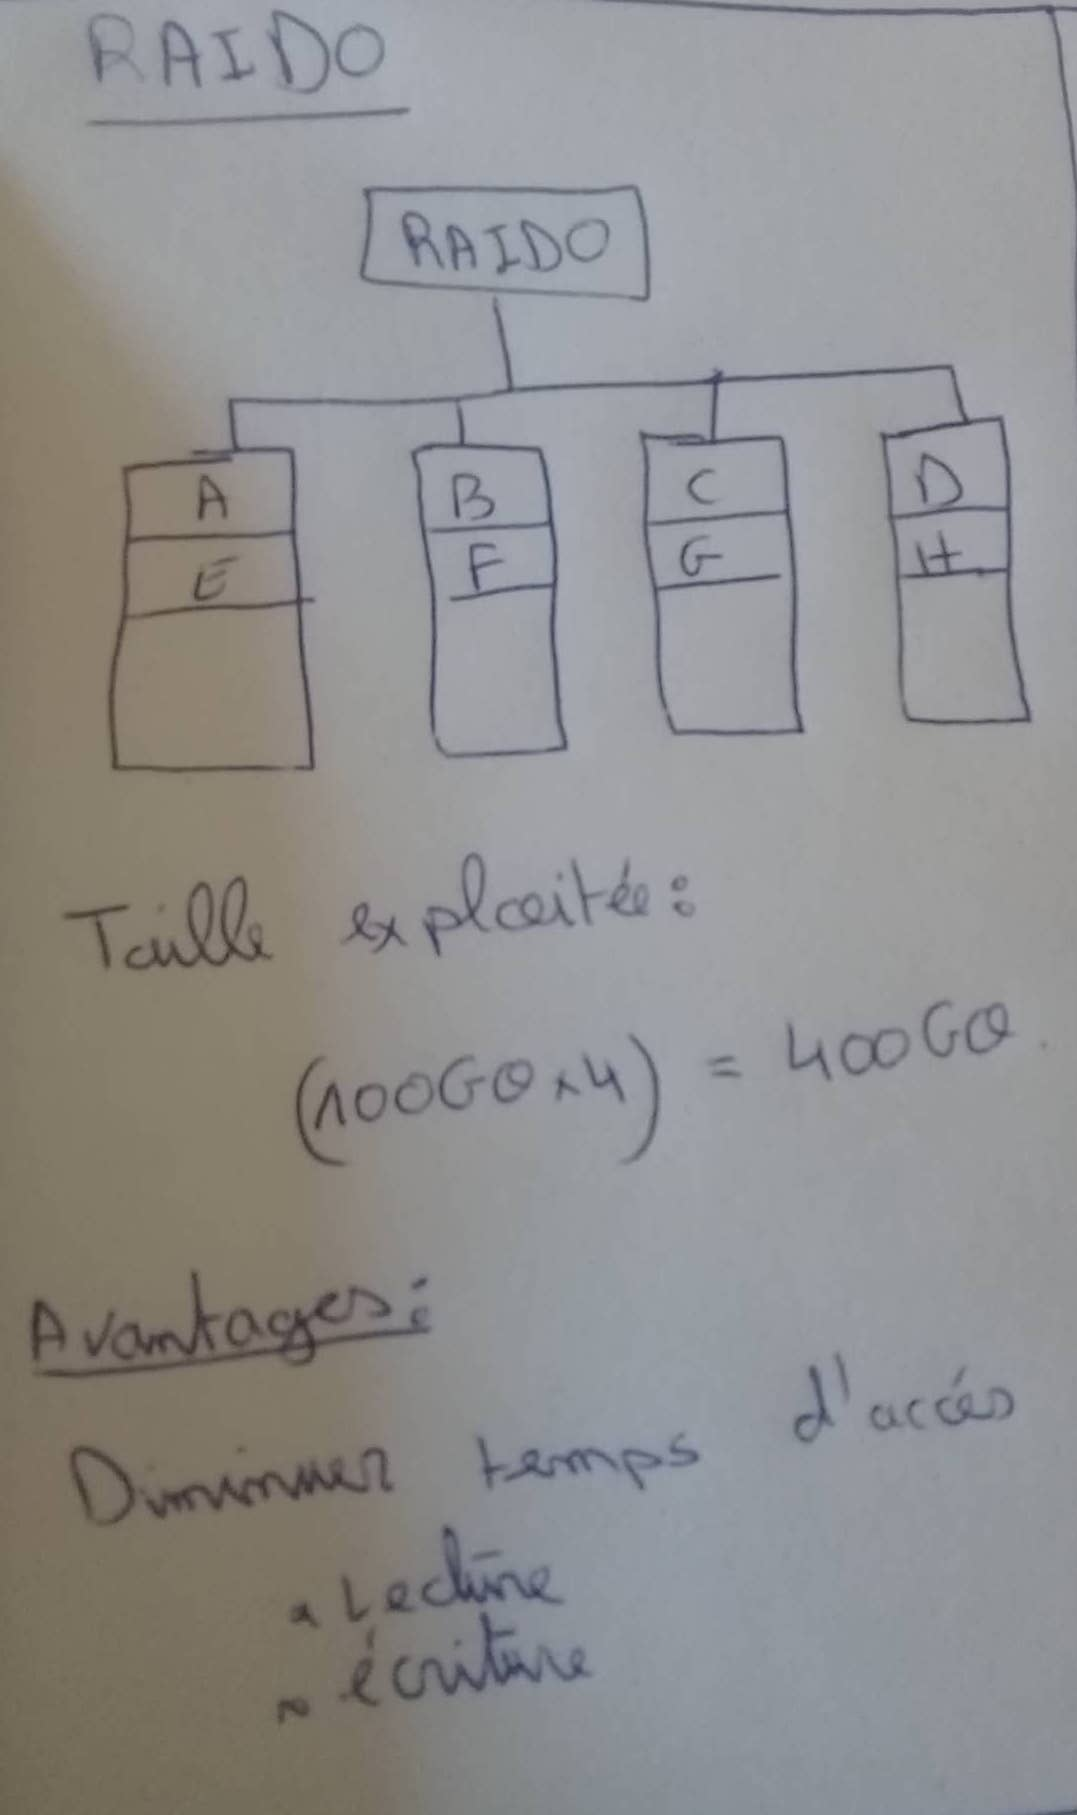 RAID0
RAID0
A B C D
E F G H
Taille exploitée:
(100GO x 4) = 400GO.
Avantages:
Diminuer temps d'accés
Lecture
écriture